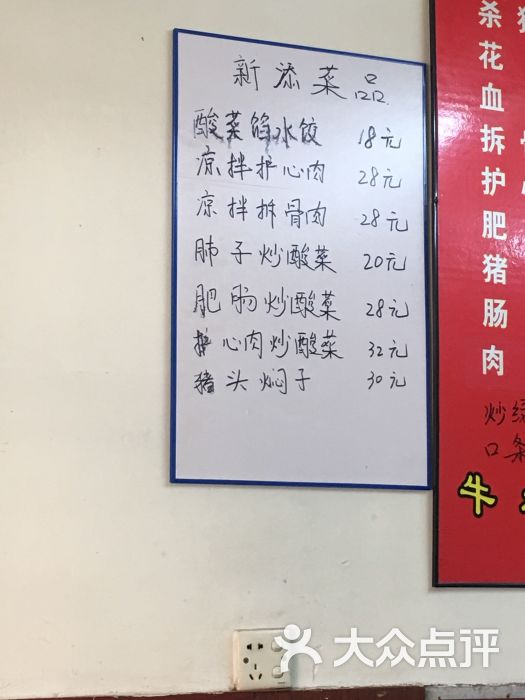 新添菜品
酸菜馅水饺 18元
凉拌护心肉 28元
凉拌拆骨肉 28元
肺子炒酸菜 20元
肥肠炒酸菜 28元
护心肉炒酸菜 32元
猪头焖子 30元
杀花血拆护肥猪肠肉
炒绿
口条
牛
大众点评